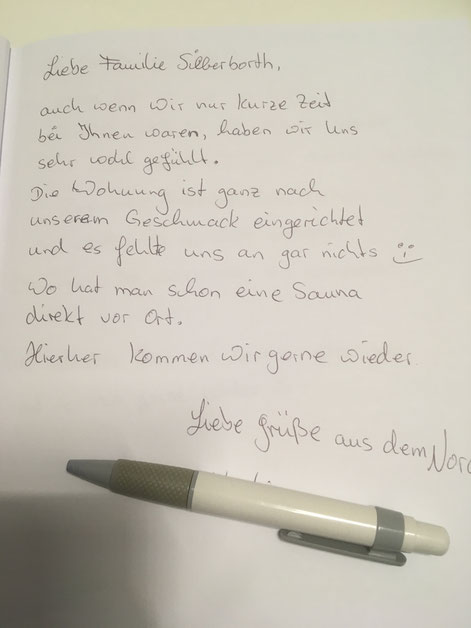 Liebe Familie Silberborth,
auch wenn wir nur kurze Zeit
bei Ihnen waren, haben wir uns
sehr wohl gefühlt.
Die Wohnung ist ganz nach
unserem Geschmack eingerichtet
und es fehlte uns an gar nichts
Wo hat man schon eine Sauna
direkt vor Ort.
Hierher kommen wir gerne wieder.
Liebe Grüße aus dem Nord